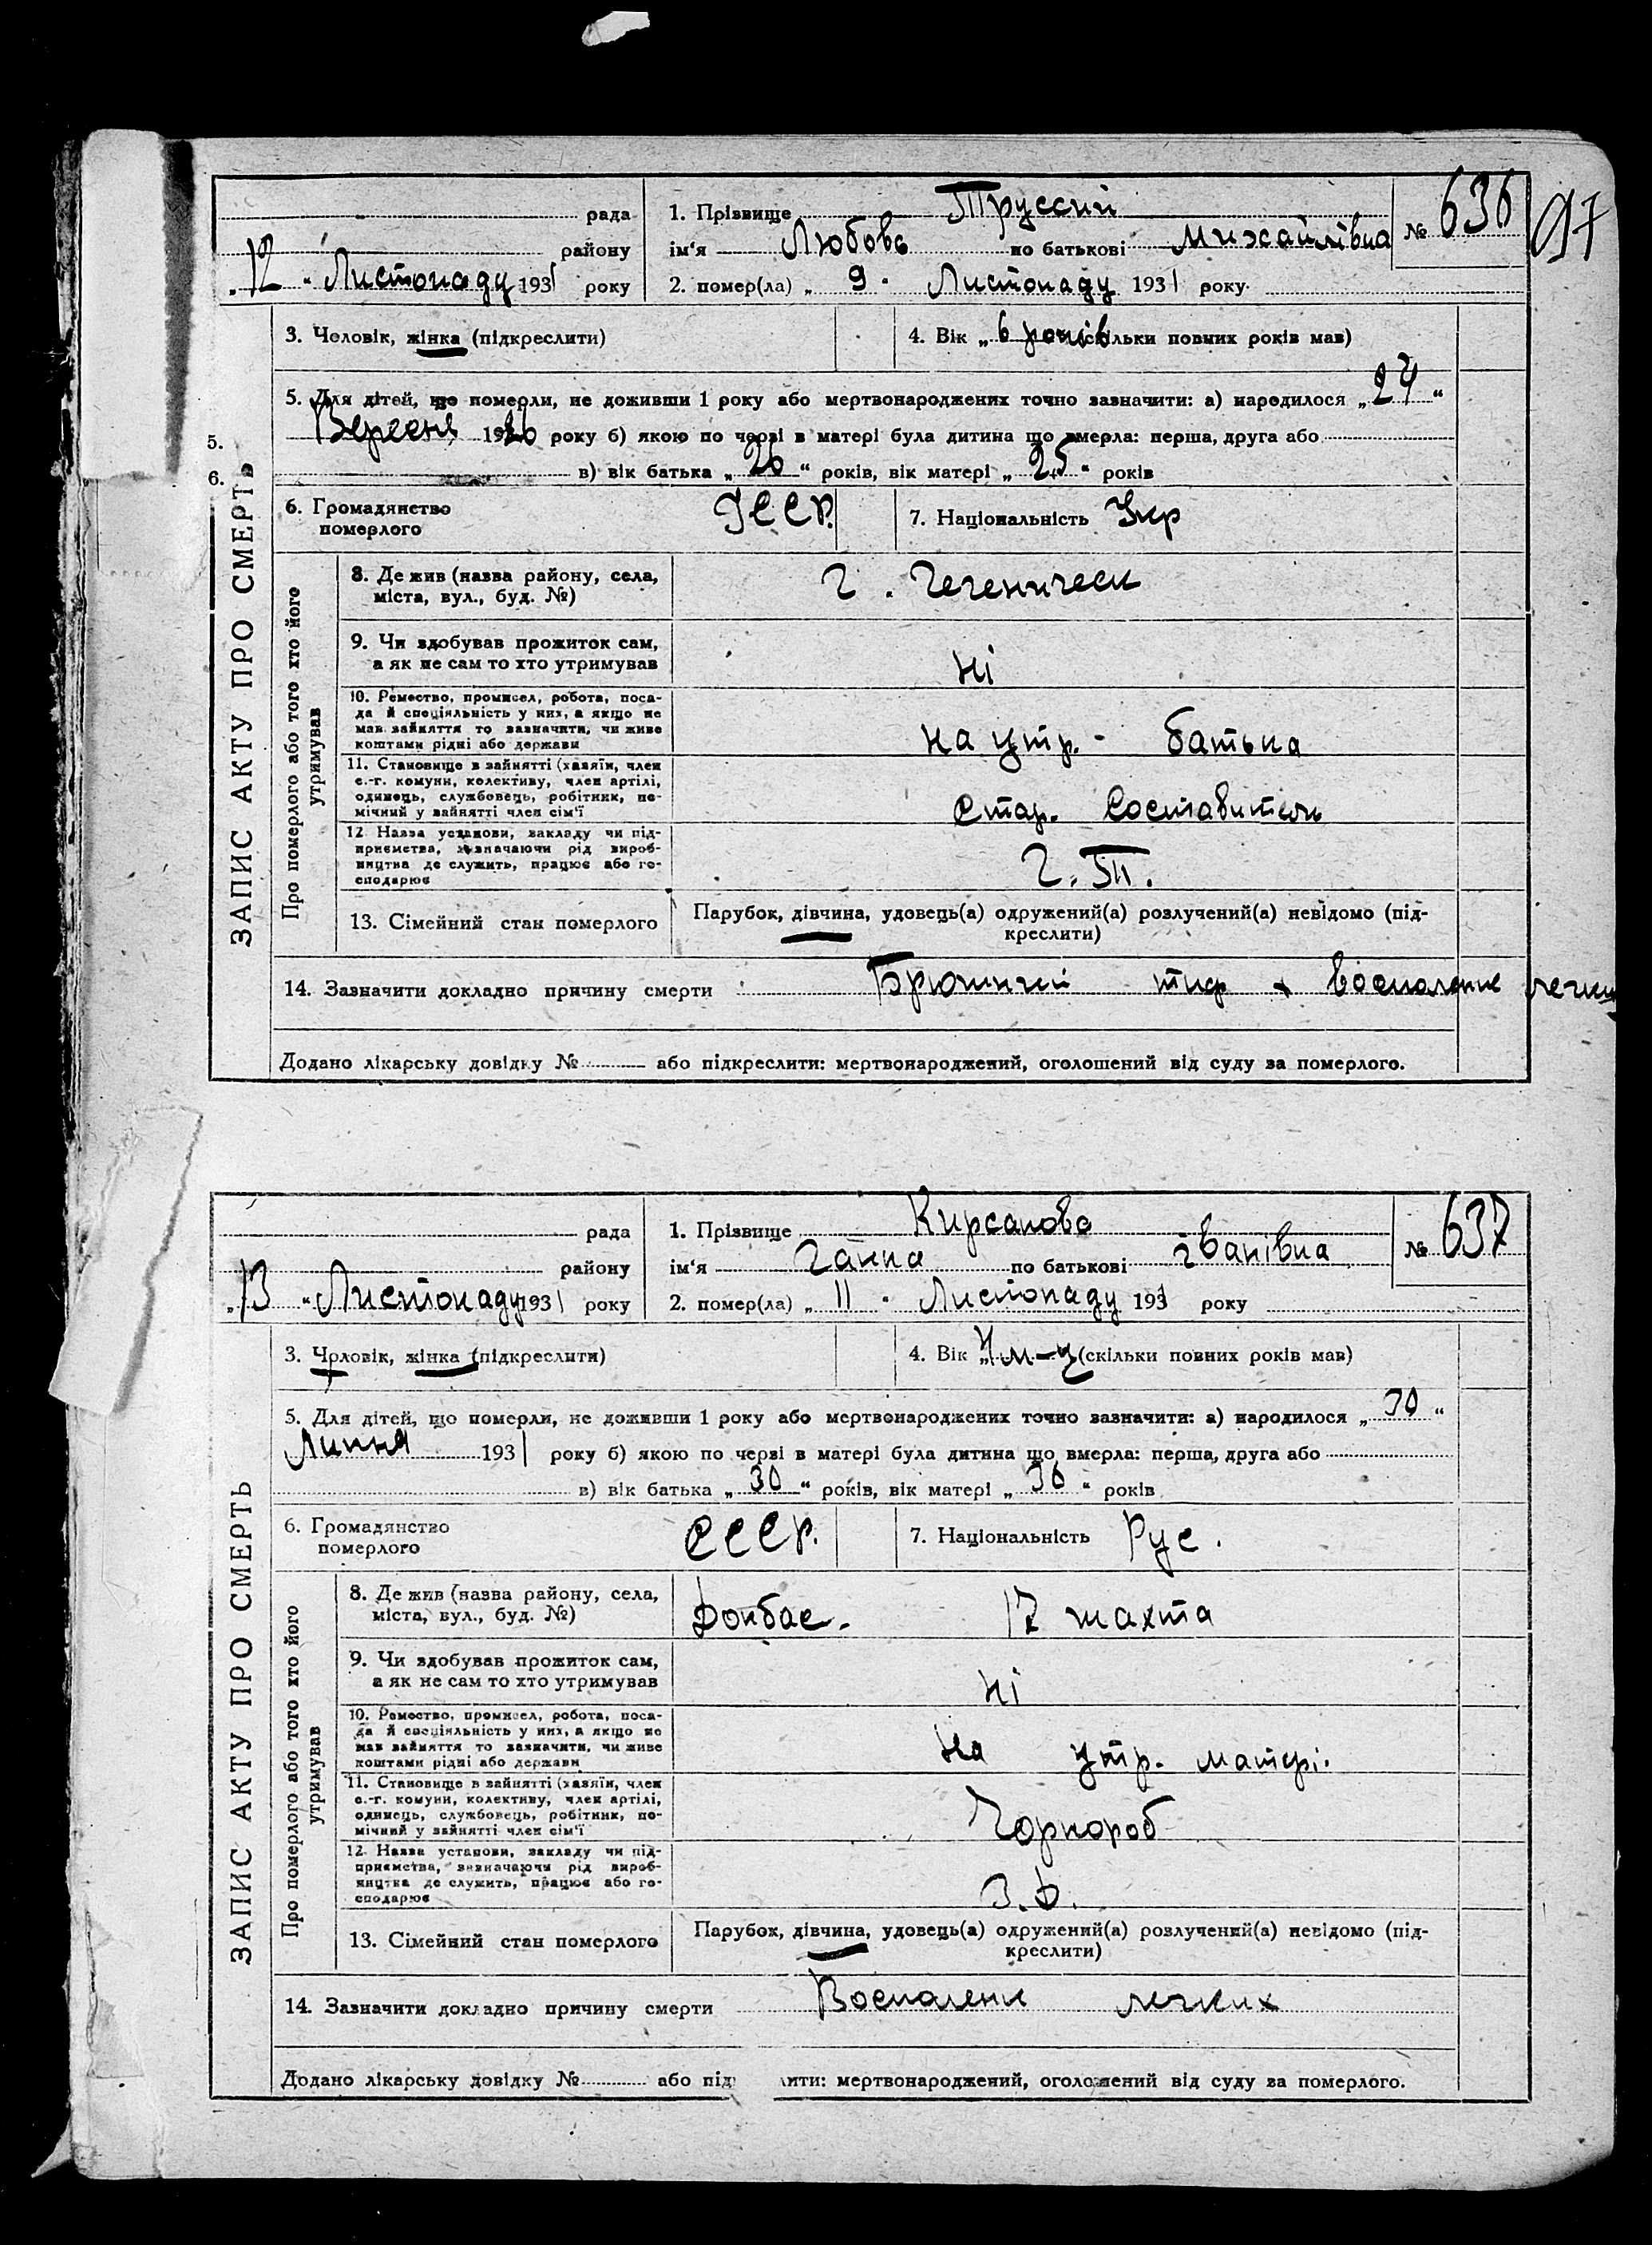 97
рада
району
„12“ Листопаду 1931 року
1. Прізвище Труссий
ім‘я Любовь по батькові Михайлівна
№ 636
2. помер(ла) „ 9 “ Листопаду 1931 року
3. Чоловік, жінка (підкреслити)
4. Вік „ 6 років (скільки повних років мав)
5. Для дітей, що померли, не доживши 1 року або мертвонароджених точно зазначити: а) народилося „ 24 “
Вересня 1926 року б) якою по черзі в матері була дитина що вмерла: перша, друга або
в) вік батька „ 26 “ років, вік матері „ 25 “ років
5.
6.
ЗАПИС АКТУ ПРО СМЕРТЬ
6. Громадянство
померлого
УССР.
7. Національність Укр
Про померлого або того хто його
утримував
8. Де жив (назва району, села,
міста, вул., буд. №)
г. Геническ
9. Чи здобував прожиток сам,
а як не сам то хто утримував
ні
10. Ремество, промисел, робота, поса-
да й спеціяльність у них, а якщо не
мав зайняття то зазначити, чи живе
коштами рідні або держави
на утр. - батька
11. Становище в зайнятті (хазяїн, член
с.-г. комуни, колективу, член артілі,
одинець, службовець, робітник, по-
мічний у зайнятті член сім‘ї
Стар. Составитель
12. Назва установи, закладу чи під-
приємства, зазначаючи рід вироб-
ництва де служить, працює або го-
сподарює
13. Сімейний стан померлого
Парубок, дівчина, удовець(а) одружений(а) розлучений(а) невідомо (під-
креслити)
14. Зазначити докладно причину смерти Брюшной тиф + воспаление легких
Додано лікарську довідку № або підкреслити: мертвонароджений, оголошений від суду за померлого.
рада
району
„13“ Листопаду 1931 року
1. Прізвище Кирсанова
ім‘я Ганна по батькові Іванівна
№ 637
2. помер(ла) „ 11 “ Листопаду 1931 року
3. Чоловік, жінка (підкреслити)
4. Вік „4 м-ц (скільки повних років мав)
5. Для дітей, що померли, не доживши 1 року або мертвонароджених точно зазначити: а) народилося „ 30 “
Липня 1931 року б) якою по черзі в матері була дитина що вмерла: перша, друга або
в) вік батька „ 30 “ років, вік матері „ 30 “ років
ЗАПИС АКТУ ПРО СМЕРТЬ
6. Громадянство
померлого
СССР.
7. Національність Рус.
Про померлого або того хто його
утримував
8. Де жив (назва району, села,
міста, вул., буд. №)
Донбас. 17 шахта
9. Чи здобував прожиток сам,
а як не сам то хто утримував
ні
10. Ремество, промисел, робота, поса-
да й спеціяльність у них, а якщо не
мав зайняття то зазначити, чи живе
коштами рідні або держави
на утр. матері.
11. Становище в зайнятті (хазяїн, член
с.-г. комуни, колективу, член артілі,
одинець, службовець, робітник, по-
мічний у зайнятті член сім‘ї
Чорнороб
12. Назва установи, закладу чи під-
приємства, зазначаючи рід вироб-
ництва де служить, працює або го-
сподарює
13. Сімейний стан померлого
Парубок, дівчина, удовець(а) одружений(а) розлучений(а) невідомо (під-
креслити)
14. Зазначити докладно причину смерти Воспалени легких
Додано лікарську довідку № або під лити: мертвонароджений, оголошений від суду за померлого.